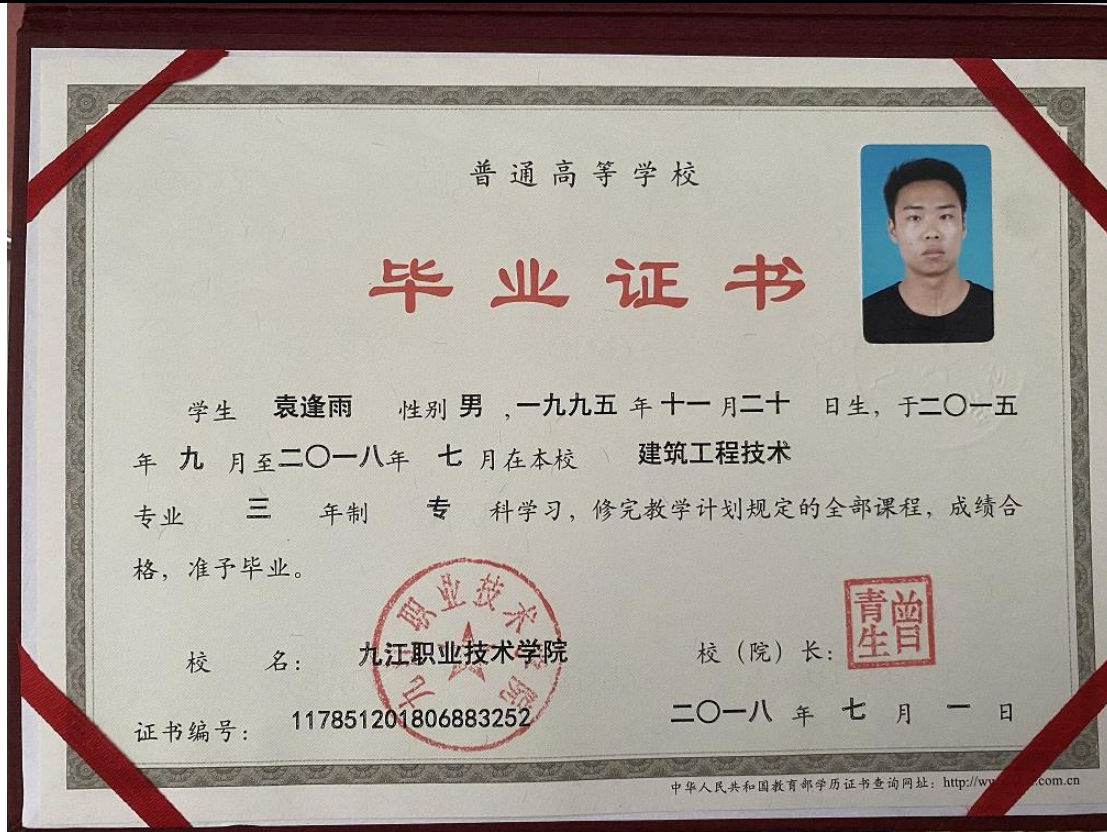 普通高等学校
毕业证书
学生 袁逢雨 性别 男 ,一九九五 年 十一 月二十 日生，于二〇一五
年 九 月至二〇一八年 七 月在本校 建筑工程技术
专业 三 年制 专 科学习，修完教学计划规定的全部课程，成绩合
格，准予毕业。
九江职业技术学院
曾青生
校 名： 九江职业技术学院 校（院）长：
证书编号： 117851201806883252 二〇一八 年 七 月 一 日
中华人民共和国教育部学历证书查询网址：http://w .com.cn